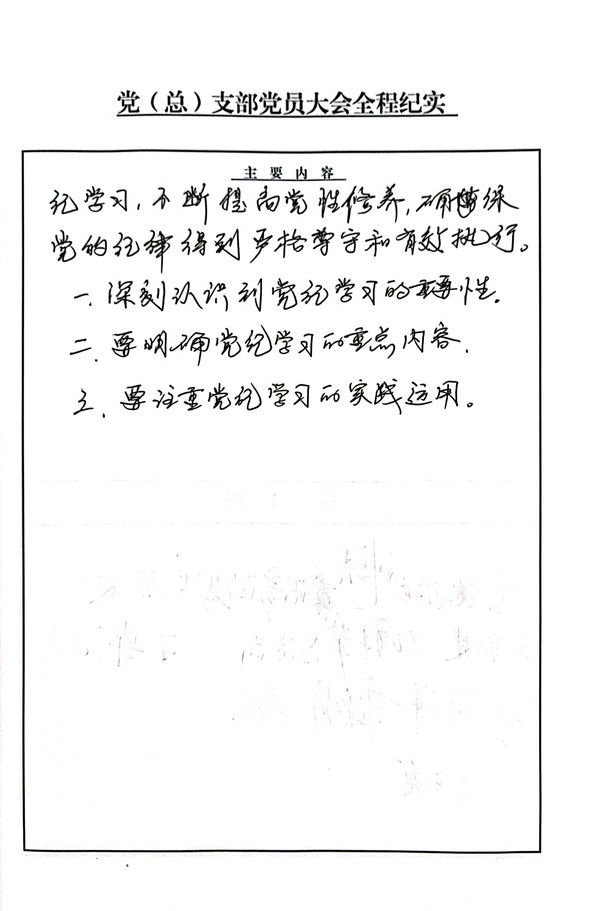 党（总）支部党员大会全程纪实
主要内容
纪学习，不断提高党性修养，确保
党的纪律得到严格尊守和有效执行。
一、深刻认识到党纪学习的重要性。
二、要明确党纪学习的重点内容。
三、要注重党纪学习的实践运用。